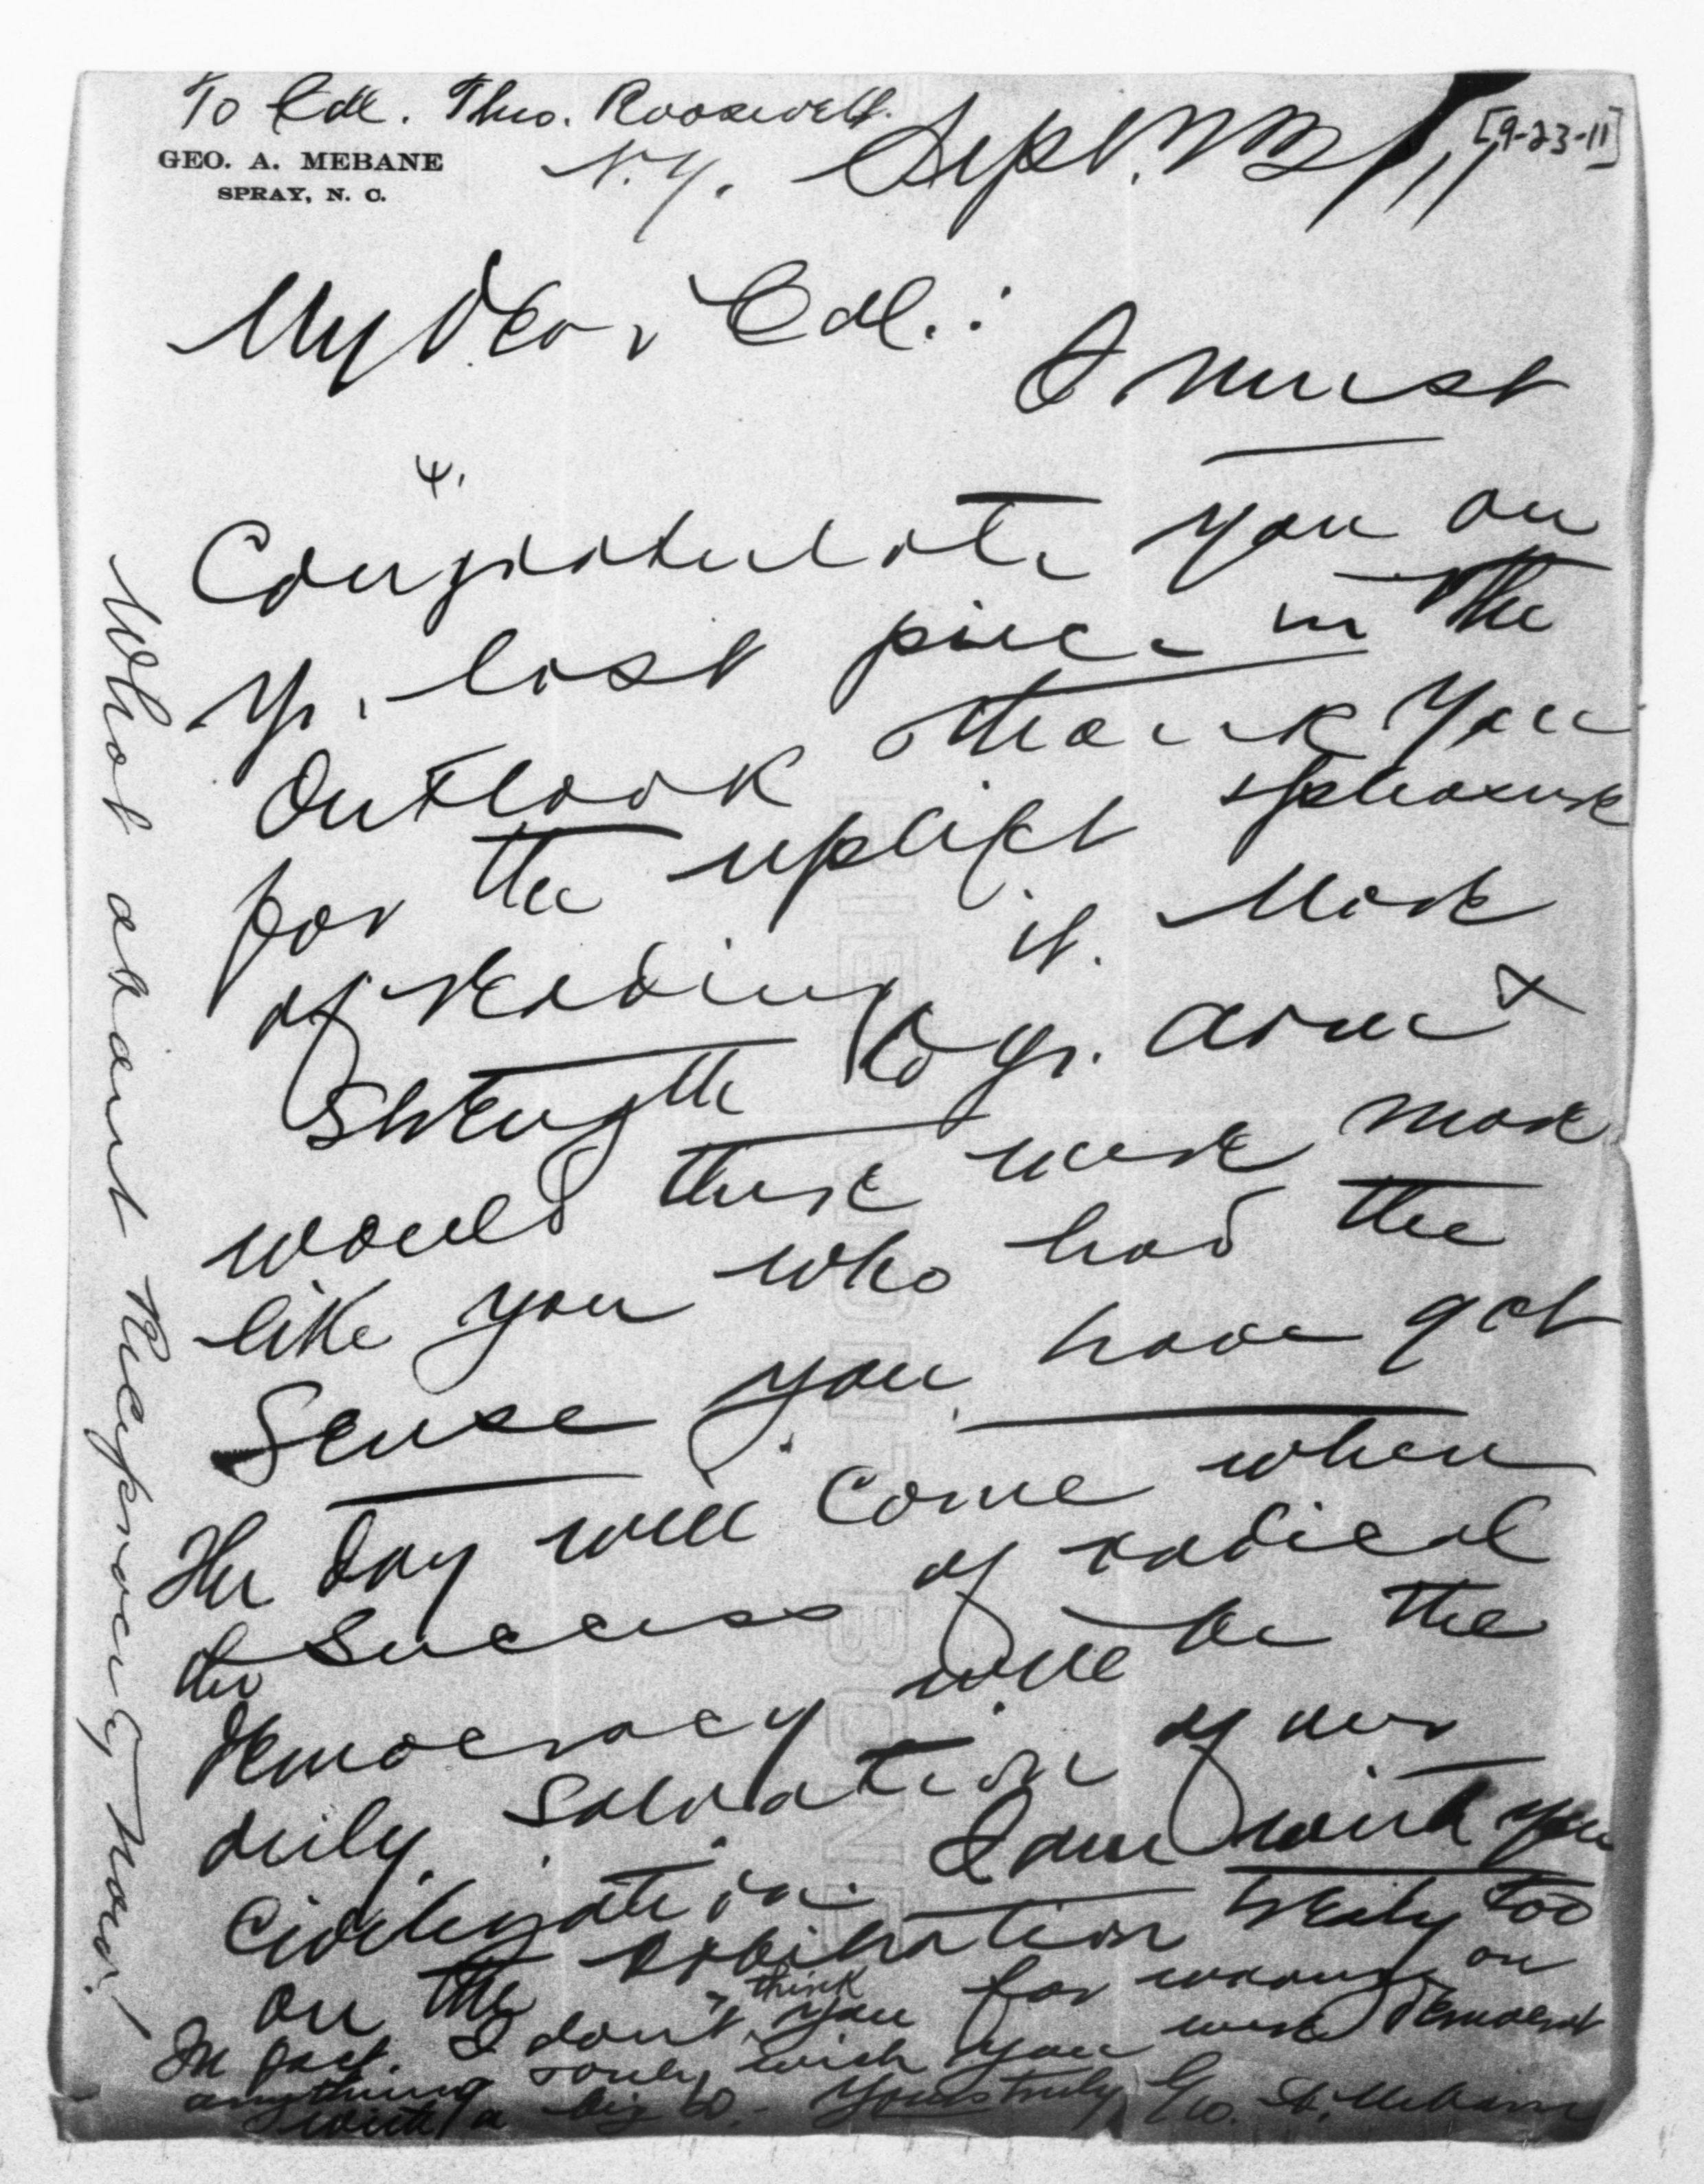 To Col. Theo. Roosevelt.
GEO. A. MEBANE
SPRAY, N. C.
N.Y. Sept. 23/11
[9-23-11]
My Dear Col.:
I must
Congratulate you on
yr. last piece in the
Outlook thank you
for the uplift & pleasure
of reading it. More
Strength to yr. arm &
would there were more
like you who had the
Sense you have got
The day will come when
the Success of radical
Democracy will be the
only salvation of our
Civilization. I am with you
on the arbitration treaty too
In fact. I don't think you far wrong on
anything & only wish you were Democrat
with a big D.- Yours truly Geo. A. Mebane
What about Reciprocity now!